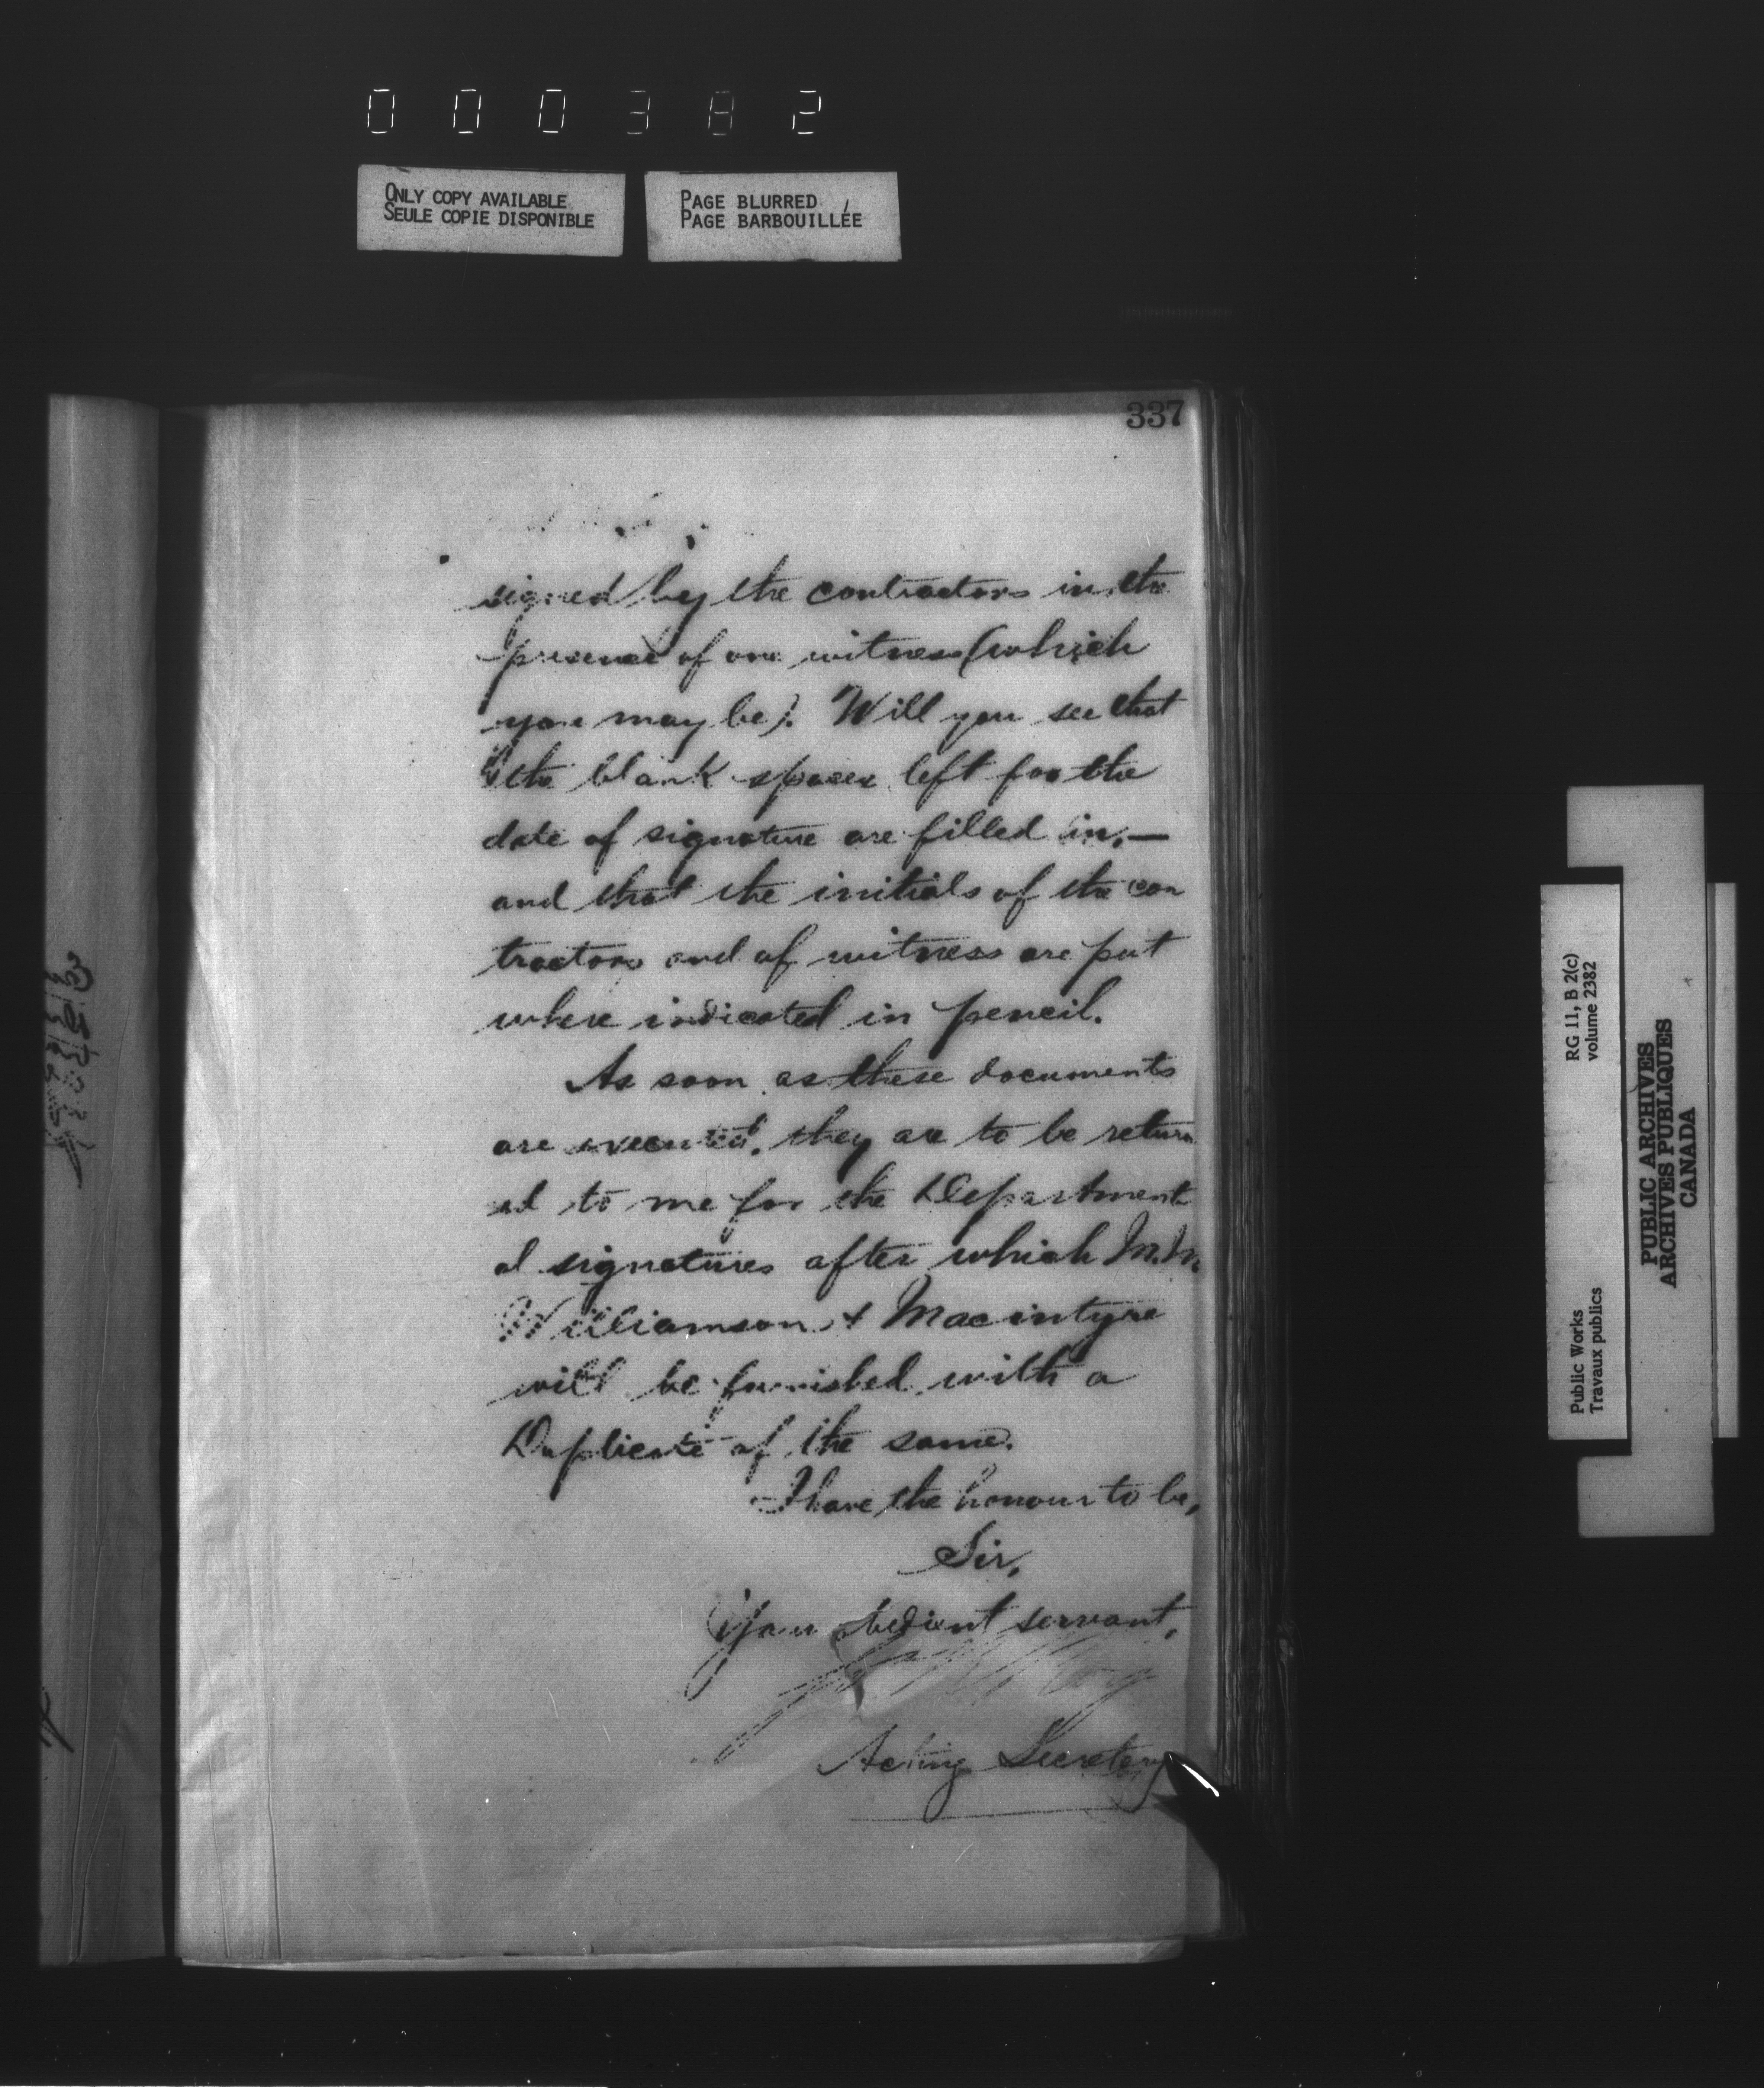 000382
ONLY COPY AVAILABLE
SEULE COPIE DISPONIBLE
PAGE BLURRED
PAGE BARBOUILLÉE
337
signed by the contractors in the
presence of one witness (which
you may be). Will you see that
the blank spaces left for the
date of signature are filled in, —
and that the initials of the con
tractors and of witness are put
where indicated in pencil.
As soon as these documents
are executed, they are to be return
ed to me for the Department
al signatures after which M.M.
Williamson & Macintyre
will be furnished with a
Duplicate of the same.
I have the honour to be,
Sir,
Your obedient servant,
Roy
Acting Secretary
RG 11, B 2(c)
volume 2382
Public Works
Travaux publics
PUBLIC ARCHIVES
ARCHIVES PUBLIQUES
CANADA